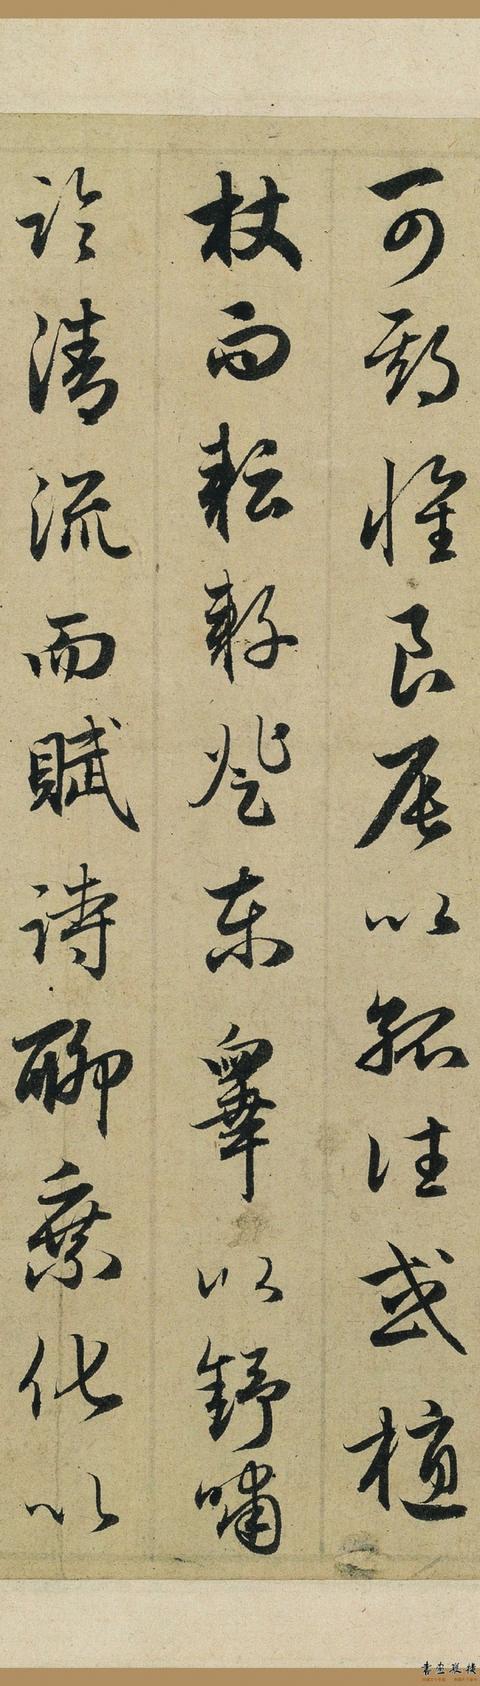 可期惟良辰以孤往或植
杖而耘耔登東皋以舒嘯
臨清流而賦詩聊乘化以